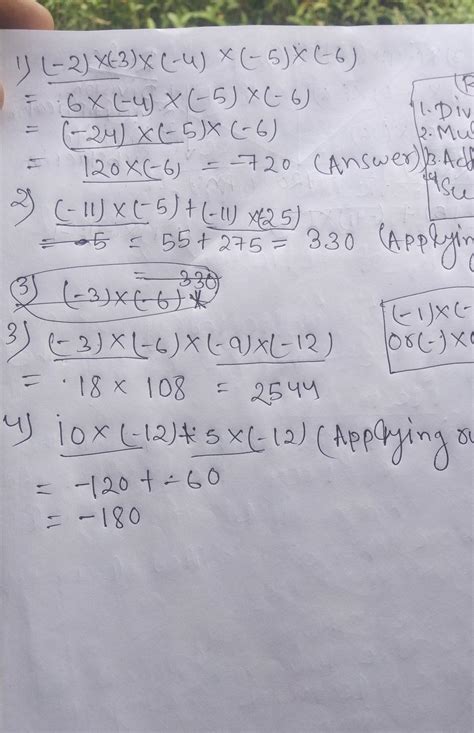 1) (-2)×(-3)×(-4)×(-5)×(-6)
= 6×(-4)×(-5)×(-6)
= (-24)×(-5)×(-6)
= 120×(-6) = -720 (Answer)
1. Div
2. Mu
3. Add
4. Su
2) (-11)×(-5)+(-11)×(-25)
= 5 = 55+275 = 330 (Applying
= 330
3) (-3)×(-6)×
(-1)×(-
or(-)×
3) (-3)×(-6)×(-9)×(-12)
= 18 × 108 = 2544
4) 10×(-12)+5×(-12) (Applying
= -120+-60
= -180